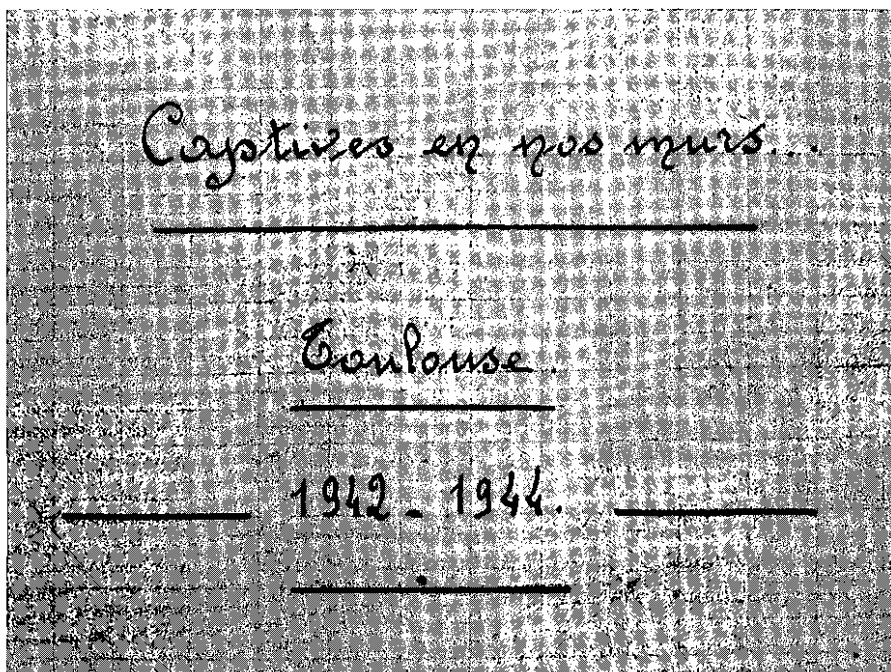 Captives en nos murs...
Toulouse.
1942 - 1944.